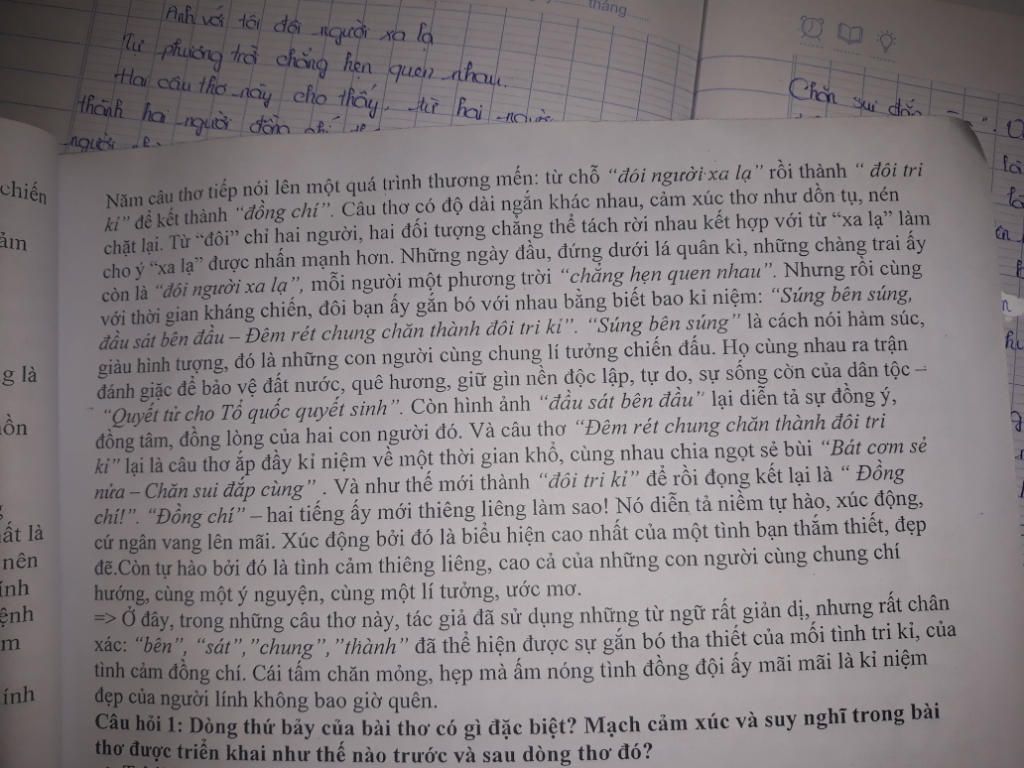 tháng
Anh với tôi đôi người xa lạ
Từ phương trời chẳng hẹn quen nhau.
Hai câu thơ này cho thấy, từ hai người
thành hai người đồng chí
người
Chăn sui đắp
chiến
ảm
g là
ồn
ất là
nên
ính
ệnh
m
ính
Năm câu thơ tiếp nói lên một quá trình thương mến: từ chỗ “đói người xa lạ” rồi thành “ đôi tri
kỉ” để kết thành “đồng chí”. Câu thơ có độ dài ngắn khác nhau, cảm xúc thơ như dồn tụ, nén
chặt lại. Từ “đôi” chỉ hai người, hai đối tượng chẳng thể tách rời nhau kết hợp với từ “xa lạ” làm
cho ý “xa lạ” được nhấn mạnh hơn. Những ngày đầu, đứng dưới lá quân kì, những chàng trai ấy
còn là “đôi người xa lạ”, mỗi người một phương trời “chẳng hẹn quen nhau”. Nhưng rồi cùng
với thời gian kháng chiến, đôi bạn ấy gắn bó với nhau bằng biết bao kỉ niệm: “Súng bên súng,
đầu sát bên đầu – Đêm rét chung chăn thành đôi tri kỉ”. “Súng bên súng” là cách nói hàm súc,
giàu hình tượng, đó là những con người cùng chung lí tưởng chiến đấu. Họ cùng nhau ra trận
đánh giặc để bảo vệ đất nước, quê hương, giữ gìn nền độc lập, tự do, sự sống còn của dân tộc –
“Quyết tử cho Tổ quốc quyết sinh”. Còn hình ảnh “đầu sát bên đầu” lại diễn tả sự đồng ý,
đồng tâm, đồng lòng của hai con người đó. Và câu thơ “Đêm rét chung chăn thành đôi tri
kỉ” lại là câu thơ ắp đầy kỉ niệm về một thời gian khổ, cùng nhau chia ngọt sẻ bùi “Bát cơm sẻ
nửa – Chăn sui đắp cùng” . Và như thế mới thành “đôi tri kỉ” để rồi đọng kết lại là “ Đồng
chí!”. “Đồng chí” – hai tiếng ấy mới thiêng liêng làm sao! Nó diễn tả niềm tự hào, xúc động,
cứ ngân vang lên mãi. Xúc động bởi đó là biểu hiện cao nhất của một tình bạn thắm thiết, đẹp
đẽ.Còn tự hào bởi đó là tình cảm thiêng liêng, cao cả của những con người cùng chung chí
hướng, cùng một ý nguyện, cùng một lí tưởng, ước mơ.
=> Ở đây, trong những câu thơ này, tác giả đã sử dụng những từ ngữ rất giản dị, nhưng rất chân
xác: “bên”, “sát”,”chung”,”thành” đã thể hiện được sự gắn bó tha thiết của mối tình tri kỉ, của
tình cảm đồng chí. Cái tấm chăn mỏng, hẹp mà ấm nóng tình đồng đội ấy mãi mãi là kỉ niệm
đẹp của người lính không bao giờ quên.
Câu hỏi 1: Dòng thứ bảy của bài thơ có gì đặc biệt? Mạch cảm xúc và suy nghĩ trong bài
thơ được triển khai như thế nào trước và sau dòng thơ đó?